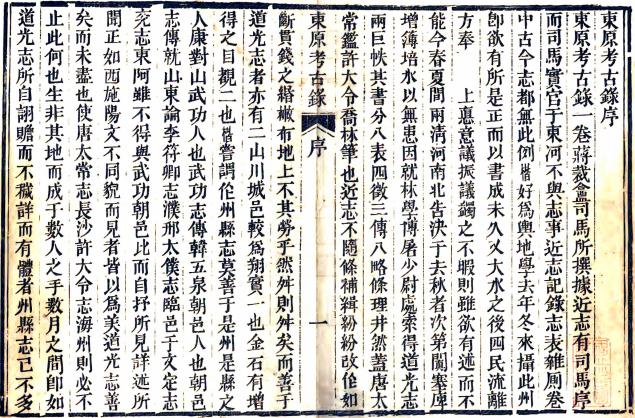 東原考古錄序
東原考古錄一卷蔣裁龕司馬所撰據近志有司馬序
而司馬實官于東河不與志事近志記錄志表雜厠卷
中古今志都無此例喈好為輿地學去年冬來攝此州
卽欲有所是正而以書成未久乂大水之後四民流離
方奉　上意議振議蠲之不暇則雖欲有述而不
能今春夏間兩清河南北告決于去秋者次第闐塞庳
增薄培水以無患因就林學博屠少尉處索得道光志
兩巨帙其書分八表四徵三傳八略條理井然蓋唐太
常鑑許大令喬林筆也近志不隨條補緝紛紛改作如
東原考古錄　序　一
斷貫錢之緡橵布地上不其勞乎然舛則舛矣而善于
道光志者亦有二山川城邑較為翔實一也金石有增
得之目覩二也喈嘗謂作州縣志莫善于是州是縣之
人康對山武功人也武功志傳韓五泉朝邑人也朝邑
志傳就山東論李符卿志濮邢太僕志臨邑于文定志
兗志東阿雖不得與武功朝邑比而自抒所見詳述所
聞正如西施陽文不同貌而見者皆以為美道光志善
矣而未盡也使唐太常志長沙許大令志海州則必不
止此何也生非其地而成于數人之手數月之間卽如
道光志所自詡贍而不穢詳而有體者州縣志已不多